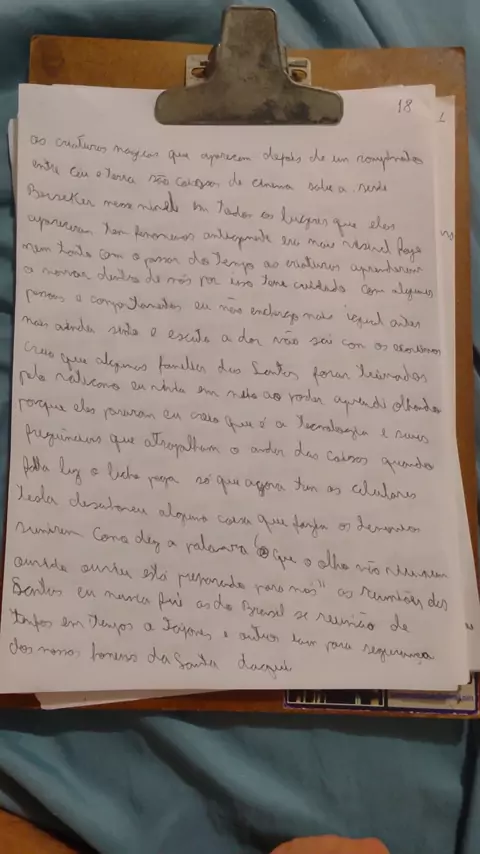 18
1
as criaturas magicas que aparecem depois de um rompimento
entre ceu e terra são coisas de cinema sabe a
Berseker nesse em todos os lugares que eles
apareceram tem fenomenos antigamente era mais hoje
nem tanto com o passar do tempo as criaturas aprenderam
a morar dentro de nós por isso tome cuidado com algumas
pessoas e comportamentos eu não enchergo mais igual antes
mas ainda sinto e escuto a dor não sai com os
creio que algumas familias dos Santos foram treinados
pelo vaticano eu minha em meio ao poder aprendi olhando
porque eles pararam eu creio que é a tecnologia e suas
frequências que atrapalham o andar das coisas quando
falta luz o bicho pega só que agora tem os celulares
tesla descobriu alguma coisa que fazia os demonios
sumirem como diz a palavra "o que o olho não viu nem
ouvido ouviu está preparado para nós" as reuniões dos
Santos eu nunca fui as do Brasil se reunião de
tempos em tempos a e outros iam para segurança
dos nossos da Santa daqui